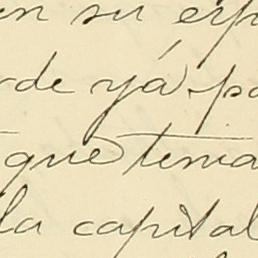 en su
rde yá pa
que tenia
la capital